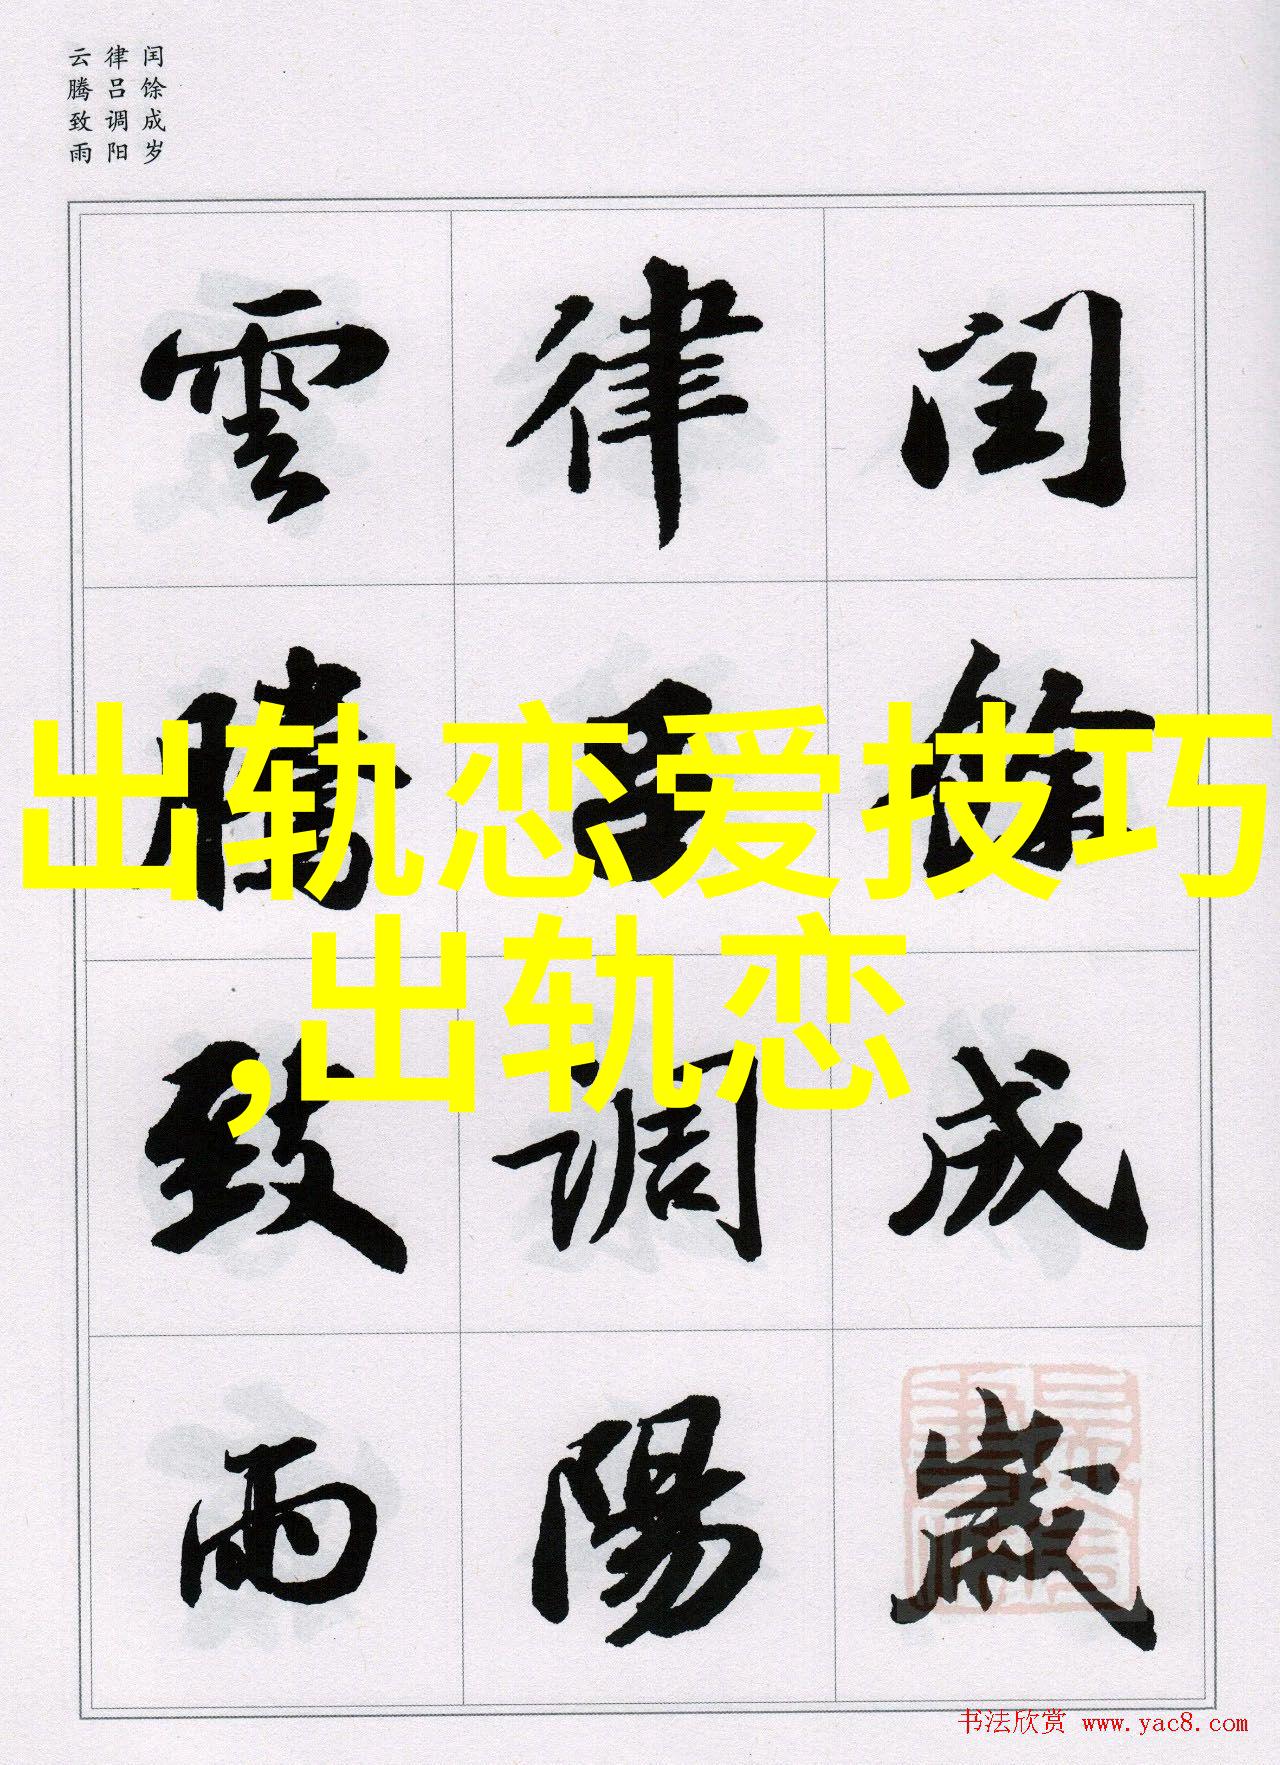 闰馀成岁
律吕调阳
云腾致雨
閏餘成歲
律吕調陽
雲騰致雨
出轨恋爱技巧
,出轨恋
书法欣赏 www.yac8.com